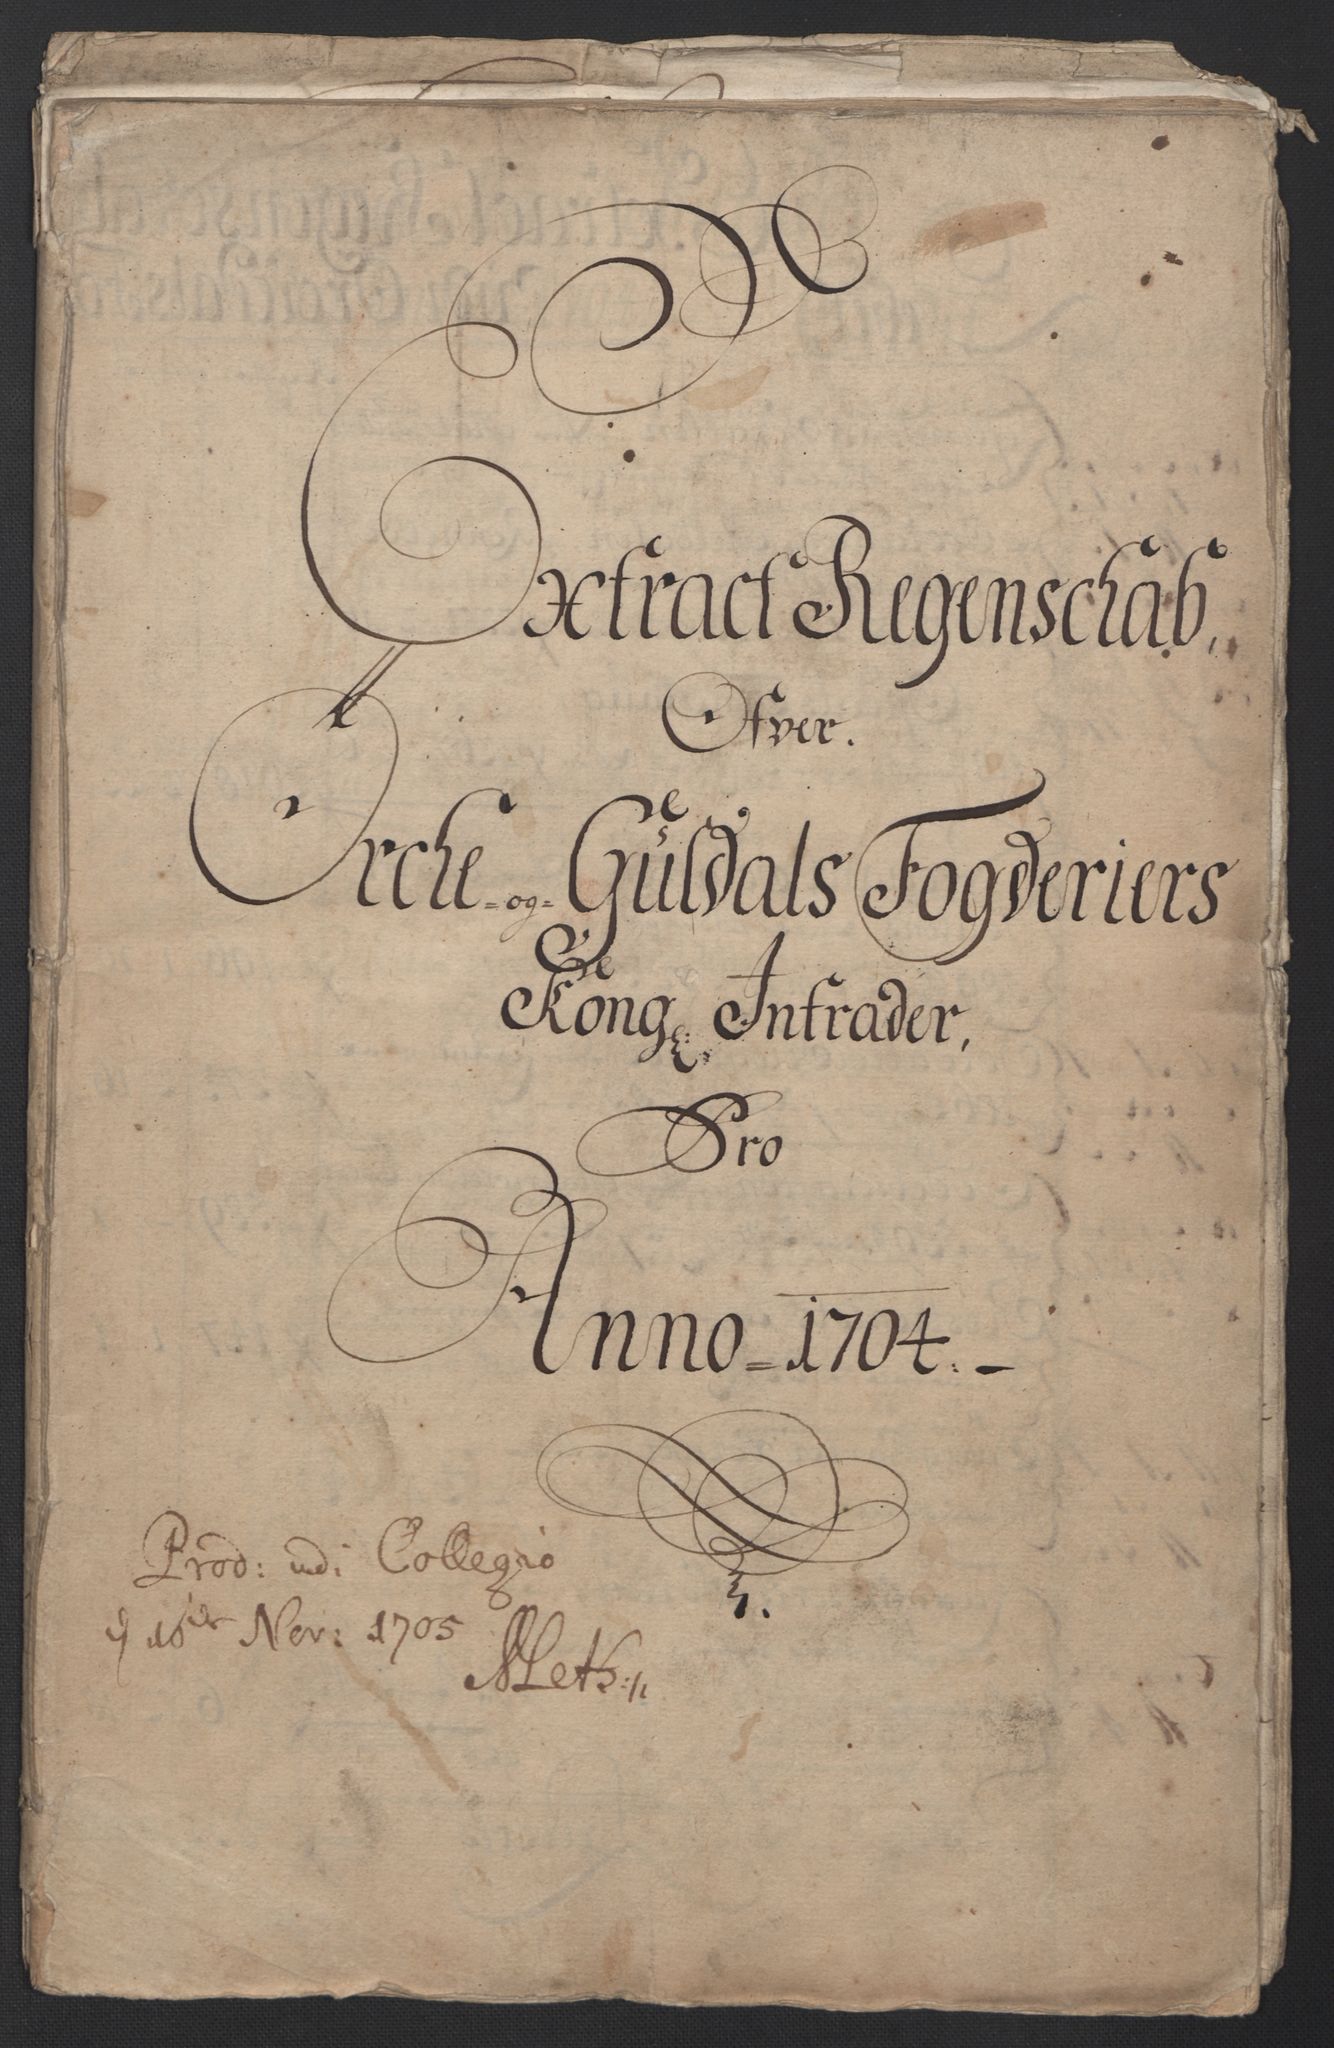 Extract Regenschab,
Ofver.
Orche =og= Guldals Fogderiers
Kong: Intrader,
Pro
Anno = 1704. -
Prod: udi Collegio
d 16de Nov: 1705